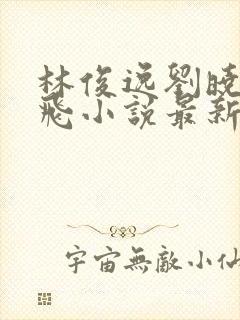 林俊逸劉曉
飛小說最新
宇宙無敵小仙